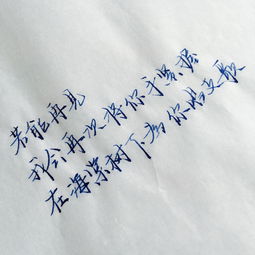 若能再见
我会再次将你手紧握
在海棠树下为你唱支歌